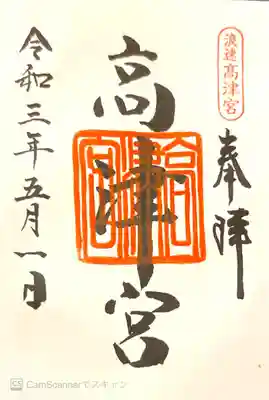 浪速高津宮
奉拝
高津宮
高津宮
令和三年五月一日
CS CamScannerでスキャン